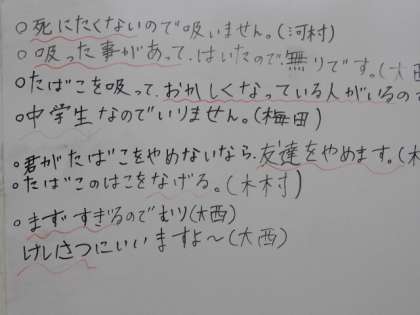 ○死にたくないので吸いません。(河村)
○吸った事があって、はいたので、無りです。(大西
○たばこを吸って、おかしくなっている人がいるので
○中学生なのでいりません。(梅田)
○君がたばこをやめないなら、友達をやめます。(木
○たばこのはこをなげる。(木村)
○まずすぎるのでむり(大西)
けいさつにいいますよ〜(大西)